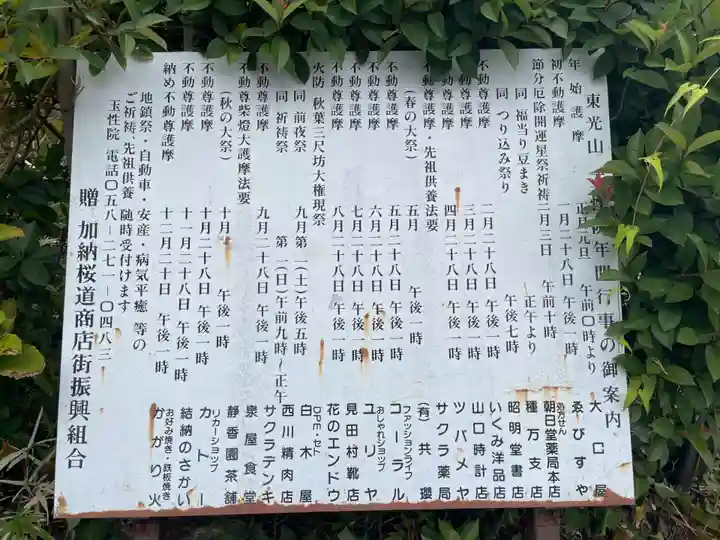 東光山 年間行事の御案内
年始護摩 正月元旦 午前〇時より
初不動護摩 一月二十八日 午後一時
節分厄除開運星祭祈祷 二月三日 午前十時
同 福当り豆まき 正午より
同 つり込み祭り 午後七時
不動尊護摩 二月二十八日 午後一時
不動尊護摩 三月二十八日 午後一時
不動尊護摩 四月二十八日 午後一時
不動尊護摩・先祖供養法要
(春の大祭) 五月 午後一時
不動尊護摩 五月二十八日 午後一時
不動尊護摩 六月二十八日 午後一時
不動尊護摩 七月二十八日 午後一時
不動尊護摩 八月二十八日 午後一時
火防 秋葉三尺坊大権現祭
同 前夜祭 九月 第一(土)午後五時
同 祈祷祭 第一(日)午前九時〜正午
不動尊護摩 九月二十八日 午後一時
不動尊柴燈大護摩法要
(秋の大祭) 十月 午後一時
不動尊護摩 十月二十八日 午後一時
不動尊護摩 十一月二十八日 午後一時
納め不動尊護摩 十二月二十日 午後一時
地鎮祭・自動車・安産・病気平癒 等の
ご祈祷、先祖供養 随時受付けます
玉性院 電話〇五八−二七一−〇四八三
大口屋
ゑびすや
朝日堂薬局本店
種万支店
昭明堂書店
いくみ洋品店
山口時計店
ツバメヤ
サクラ薬局
(有)共瓔
ファッションライフ
コーラル
おしゃれショップ
ユリヤ
見田村靴店
花のエンドウ
DPM・セト
白木屋
西川精肉店
サクラデンキ
泉屋食堂
静香園茶舗
リカーショップ
カトー
結納のさかい
お好み焼き・鉄板焼き
かがり火
贈 加納桜道商店街振興組合